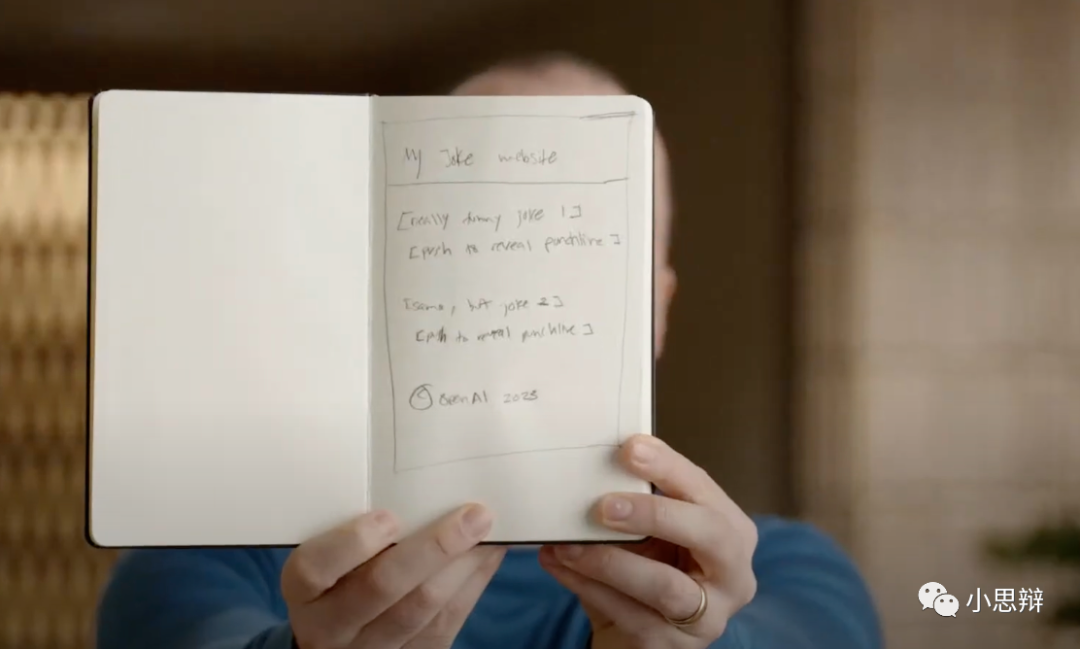 My Joke website
[really funny joke 1]
[push to reveal punchline]
[same, but joke 2]
[push to reveal punchline]
© OpenAI 2023
小思辩